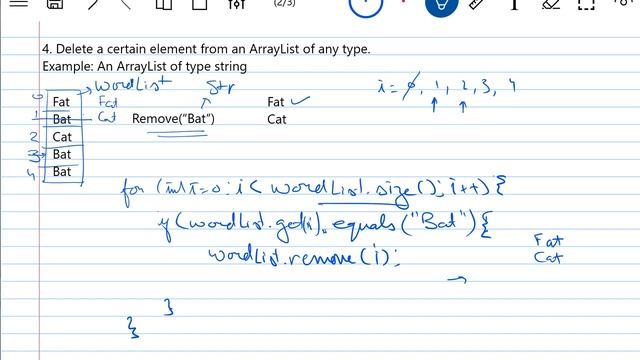 (2/3)
4. Delete a certain element from an ArrayList of any type.
Example: An ArrayList of type string
wordList Str
i = 0, 1, 2, 3, 4
0 Fat Fat Fat ✓
1 Bat Cat Remove("Bat") Cat
2 Cat
3 Bat
4 Bat
for (int i=0; i< wordList.size(); i++) {
if (wordList.get(i).equals("Bat") {
wordList.remove(i);
Fat
Cat
→
}
}